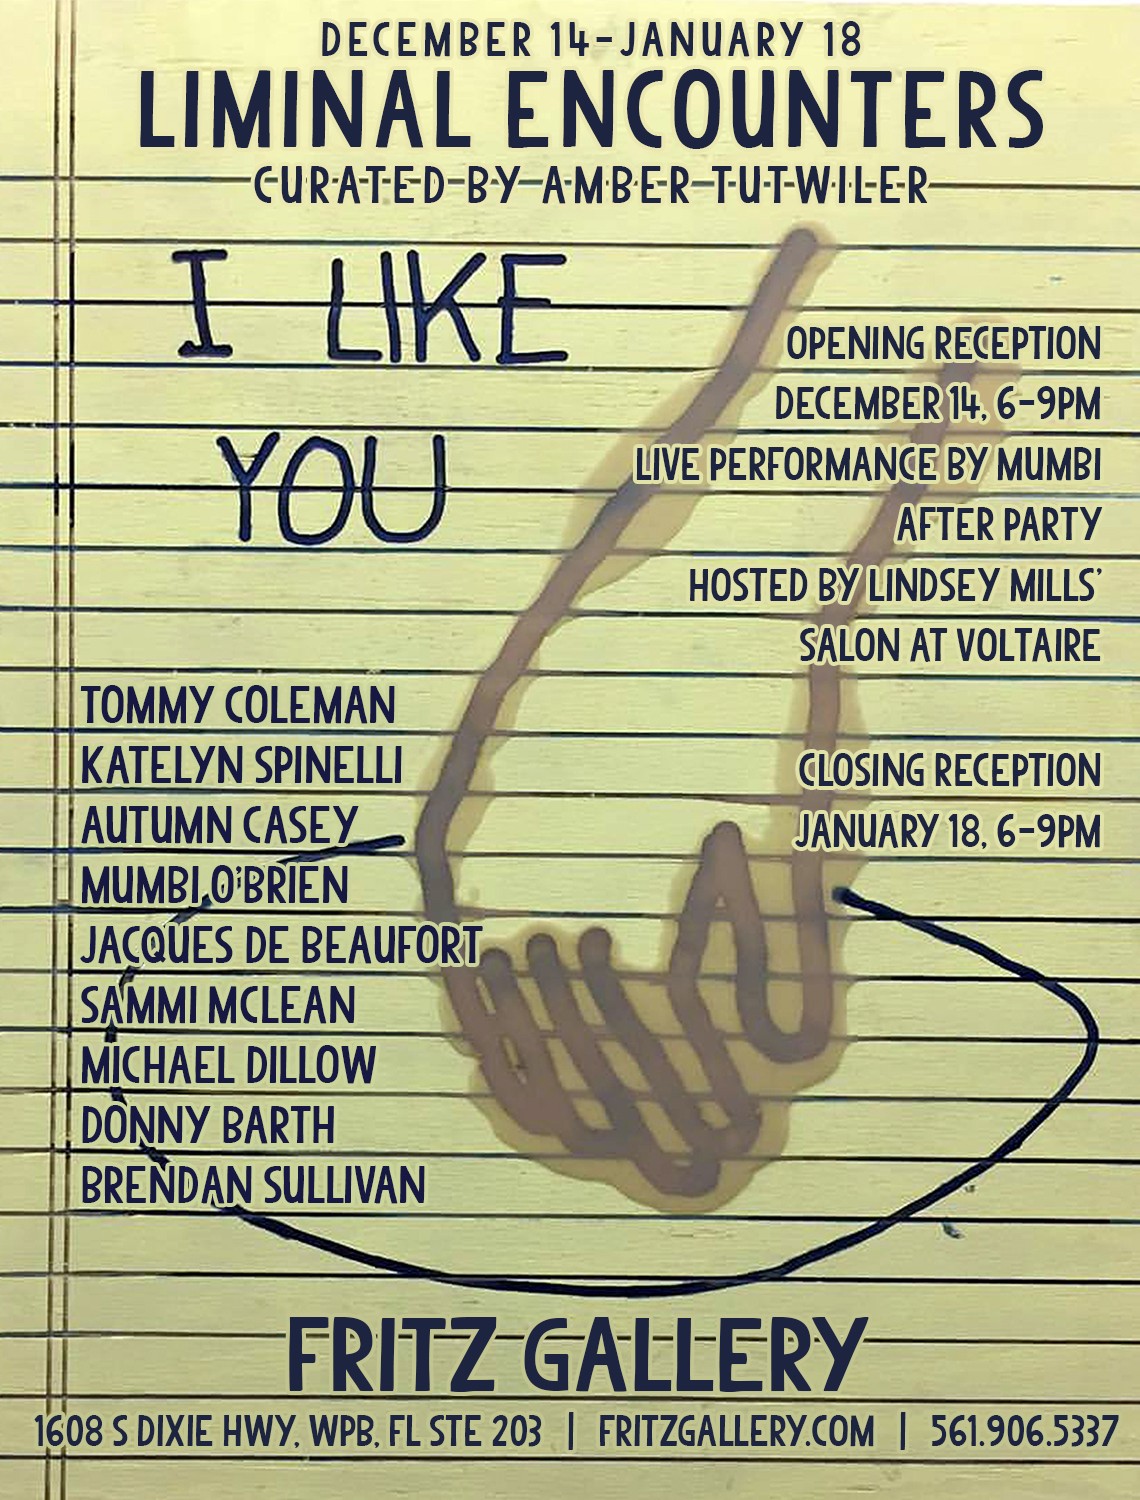 DECEMBER 14-JANUARY 18
LIMINAL ENCOUNTERS
CURATED BY AMBER TUTWILER
I LIKE
YOU
OPENING RECEPTION
DECEMBER 14, 6-9PM
LIVE PERFORMANCE BY MUMBI
AFTER PARTY
HOSTED BY LINDSEY MILLS'
SALON AT VOLTAIRE
CLOSING RECEPTION
JANUARY 18, 6-9PM
TOMMY COLEMAN
KATELYN SPINELLI
AUTUMN CASEY
MUMBI O'BRIEN
JACQUES DE BEAUFORT
SAMMI MCLEAN
MICHAEL DILLOW
DONNY BARTH
BRENDAN SULLIVAN
FRITZ GALLERY
1608 S DIXIE HWY, WPB, FL STE 203 | FRITZGALLERY.COM | 561.906.5337